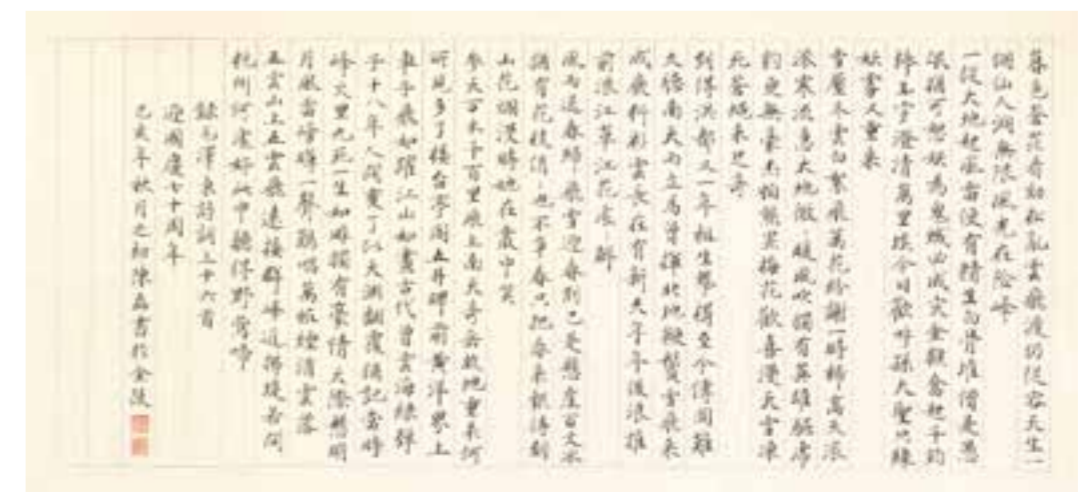 暮色蒼茫看勁松亂雲飛渡仍從容天生一
個仙人洞無限風光在險峰
一從大地起風雷便有精生白骨堆僧是愚
氓猶可訓妖為鬼蜮必成災金猴奮起千鈞
棒玉宇澄清萬里埃今日歡呼孫大聖只緣
妖霧又重來
雪壓冬雲白絮飛萬花紛謝一時稀高天滾
滾寒流急大地微ミ暖氣吹獨有英雄驅虎
豹更無豪杰怕熊羆梅花歡喜漫天雪凍
死蒼蠅未足奇
到得洪都又一年祖生擊楫至今傳聞雞
久聽南天雨立馬曾揮北地鞭鬢雪飛來
成廢料彩雲長在有新天年年後浪推
前浪江草江花處ミ鮮
風雨送春歸飛雪迎春到已是懸崖百丈冰
猶有花枝俏ミ也不爭春只把春來報待到
山花爛漫時她在叢中笑
參天萬木千百里飛上南天奇岳故地重來何
所見多了樓台亭閣五井碑前黃洋界上
車子飛如躍江山如畫古代曾雲海綠彈
十八年人間變了似天淵翻覆猶記當時
烽火里九死一生如昨獨有豪情天際懸明
月風雷磅礴一聲雞唱萬怪煙消雲落
五雲山上五雲飛遠接群峰近拂堤若問
杭州何處好此中聽得野鶯啼
錄毛澤東詩詞三十六首
迎國慶七十周年
己亥年秋月之初陳磊書於金陵